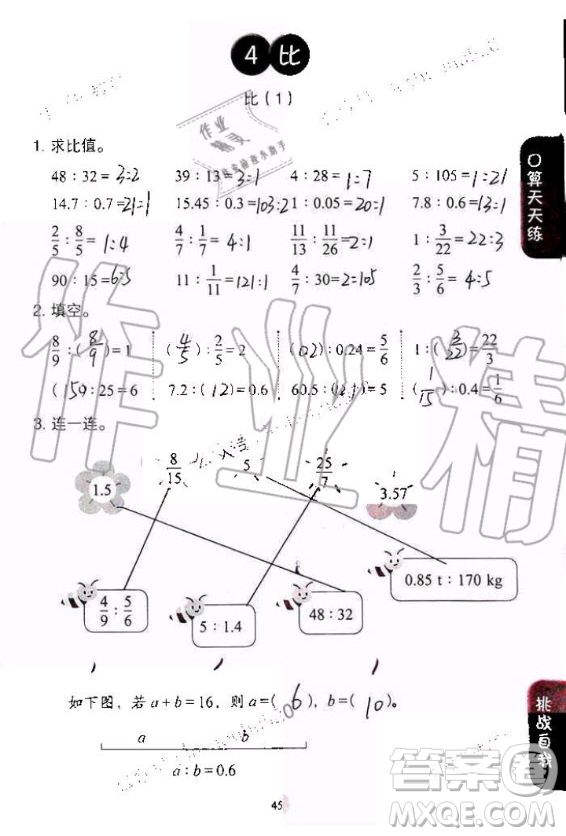 4 比
比（1）
1. 求比值。
48：32= 3:2 39：13= 3:1 4：28= 1:7 5：105= 1:21
14.7：0.7= 21=1 15.45：0.3= 103:2 1：0.05= 20:1 7.8：0.6= 13:1
2/5：8/5= 1:4 4/7：1/7= 4:1 11/13：11/26= 2:1 1：3/22= 22:3
90：15= 6:1 11：1/11= 121:1 4/7：30= 2=105 2/3：5/6= 4:5
2. 填空。
8/9：(8/9)=1 (4/5)：2/5=2 ( )：0.24=5/6 1：(3/22)=22/3
(150)：25=6 7.2：(12)=0.6 60.5：(12.1)=5 (1/15)：0.4=1/6
3. 连一连。
1.5 8/15 5 25/7 3.57
4/9：5/6 5：1.4 48：32 0.85 t：170 kg
如下图，若 a+b=16，则 a=( 6 )，b=( 10 )。
a b
a：b=0.6
45
口算天天练
挑战自我
作业精
答案圈
MXQE.COM